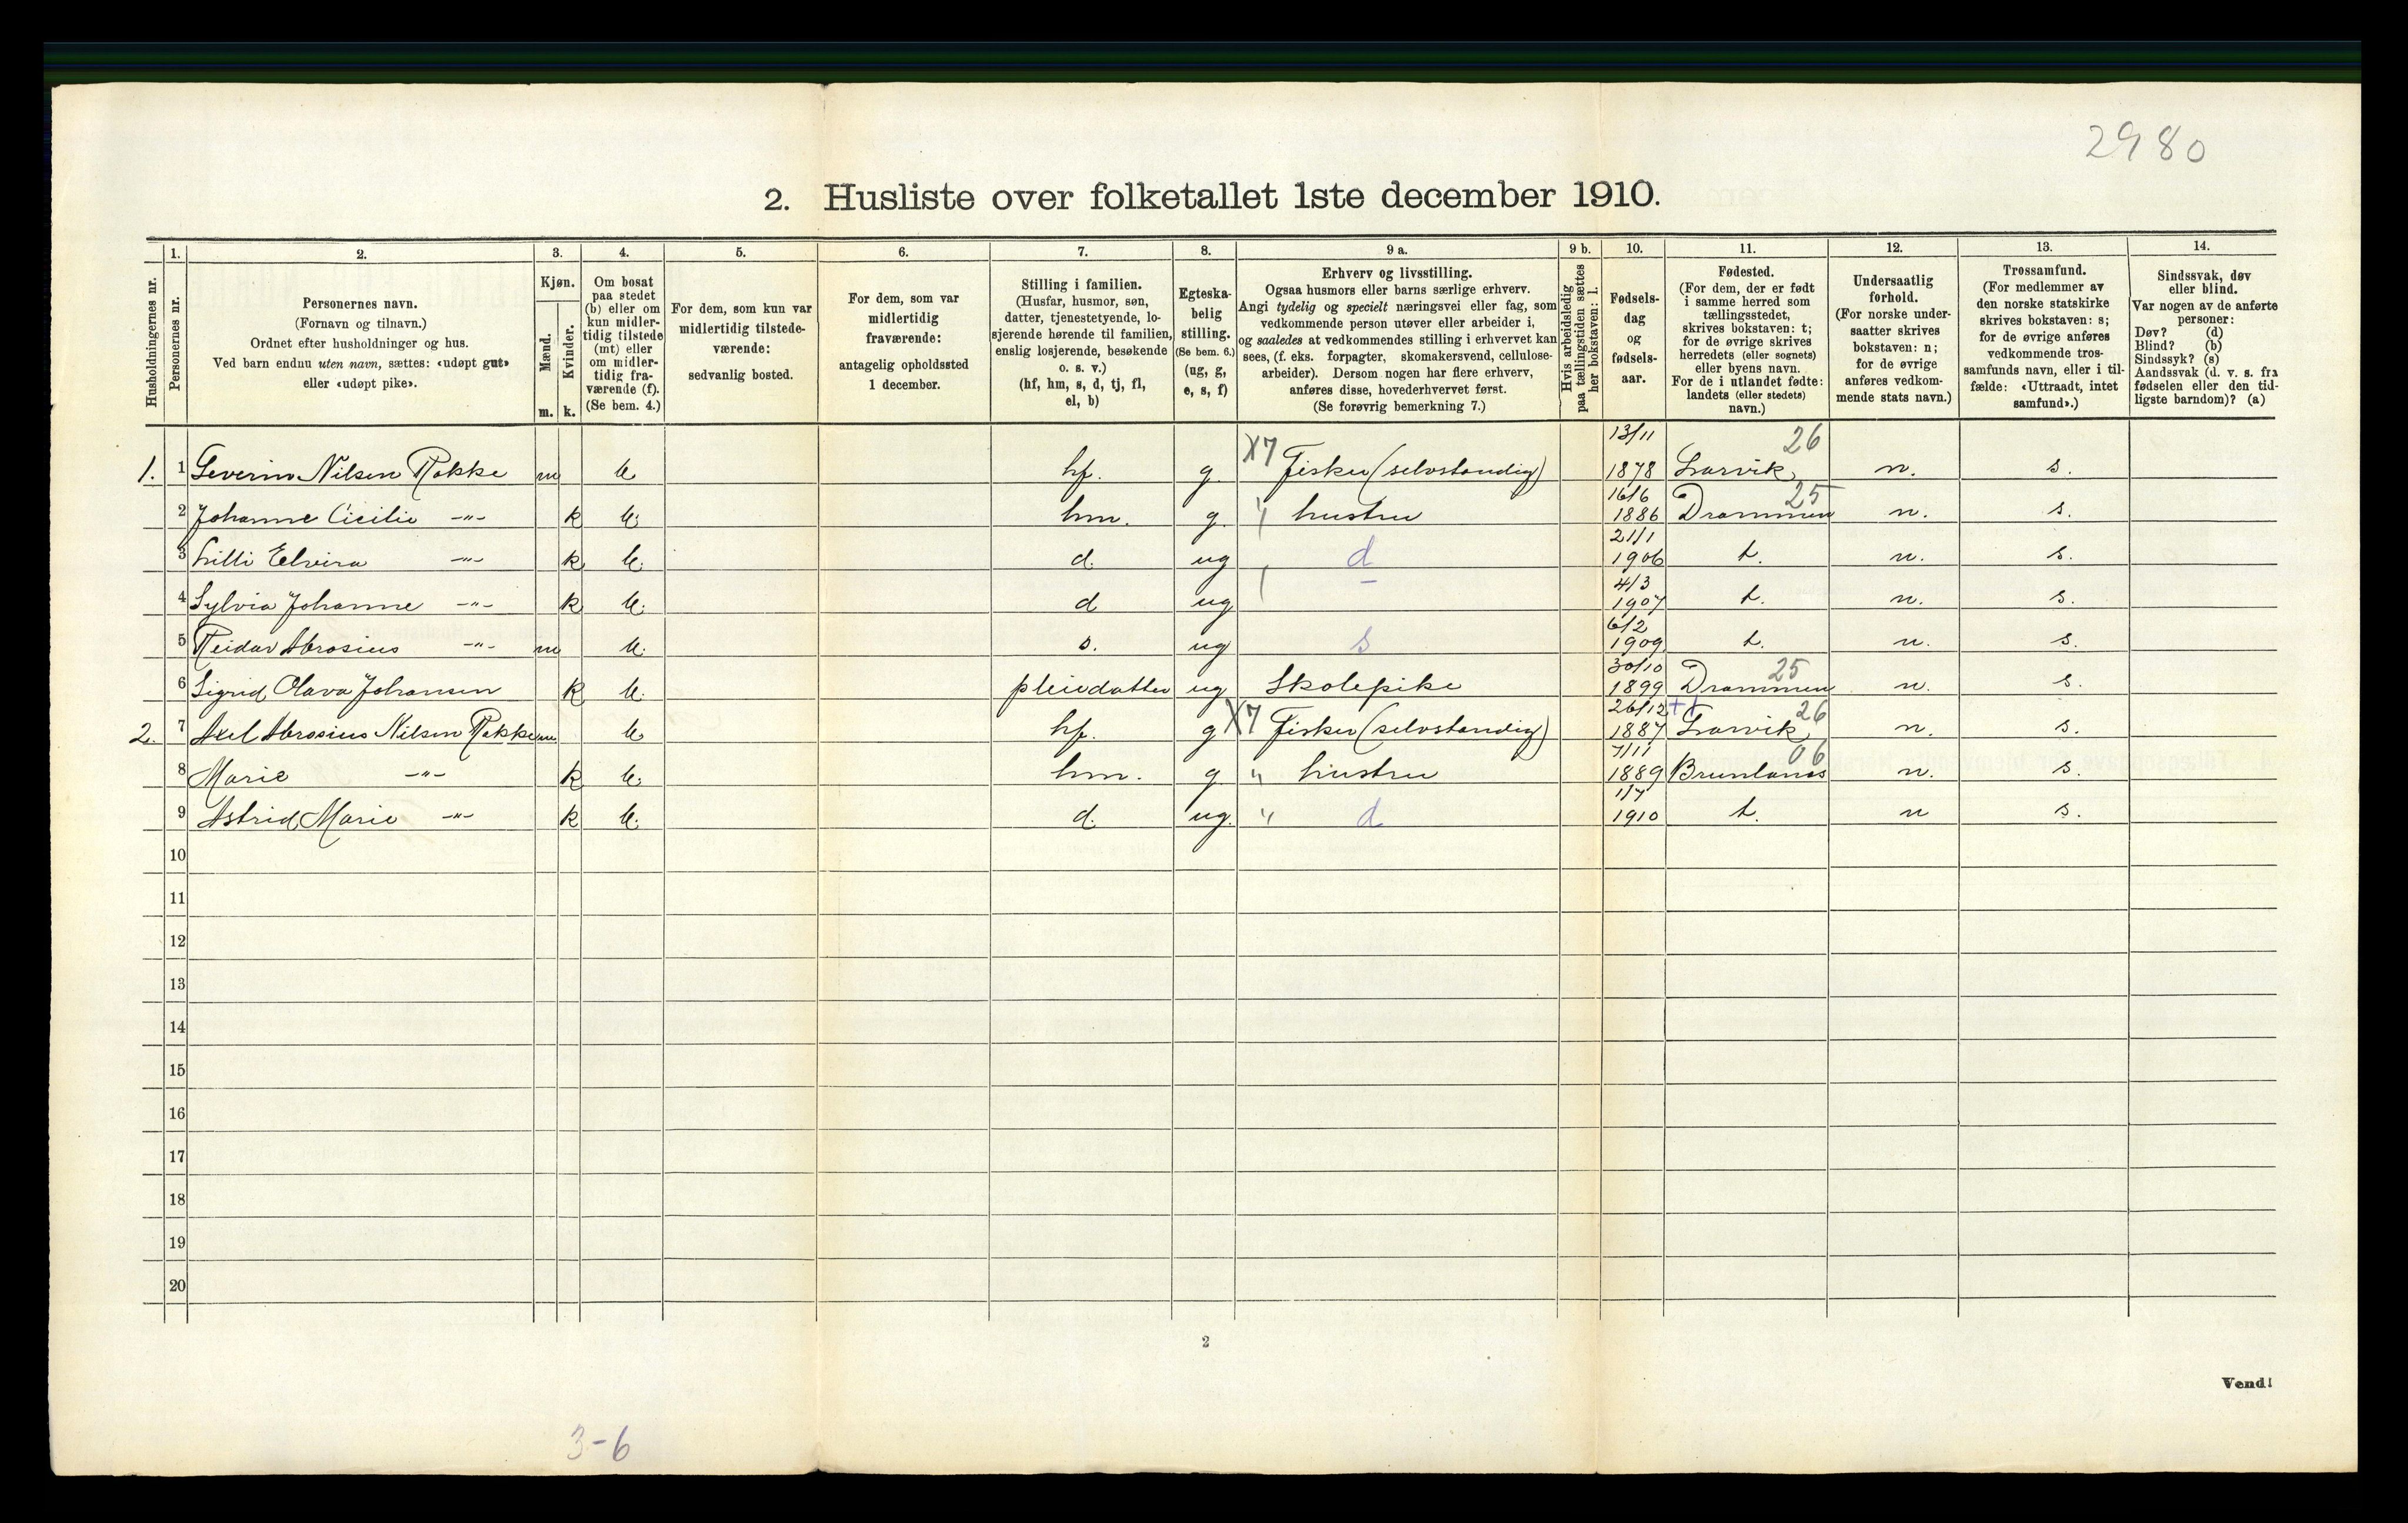 2980
2. Husliste over folketallet 1ste december 1910.
Husholdningernes nr.
1.
Personernes nr.
2.
Personernes navn.
(Fornavn og tilnavn.)
Ordnet efter husholdninger og hus.
Ved barn endnu uten navn, sættes: «udøpt gut»
eller «udøpt pike».
3.
Kjøn.
Mænd.
Kvinder.
m. k.
4.
Om bosat
paa stedet
(b) eller om
kun midler-
tidig tilstede
(mt) eller
om midler-
tidig fra-
værende (f).
(Se bem. 4.)
5.
For dem, som kun var
midlertidig tilstede-
værende:
sedvanlig bosted.
6.
For dem, som var
midlertidig
fraværende:
antagelig opholdssted
1 december.
7.
Stilling i familien.
(Husfar, husmor, søn,
datter, tjenestetyende, lo-
sjerende hørende til familien,
enslig losjerende, besøkende
o. s. v.)
(hf, hm, s, d, tj, fl,
el, b)
8.
Egteska-
belig
stilling.
(Se bem. 6.)
(ug, g,
e, s, f)
9 a.
Erhverv og livsstilling.
Ogsaa husmors eller barns særlige erhverv.
Angi tydelig og specielt næringsvei eller fag, som
vedkommende person utøver eller arbeider i,
og saaledes at vedkommendes stilling i erhvervet kan
sees, (f. eks. forpagter, skomakersvend, cellulose-
arbeider). Dersom nogen har flere erhverv,
anføres disse, hovederhvervet først.
(Se forøvrig bemerkning 7.)
9 b.
Hvis arbeidsledig
paa tællingstiden sættes
her bokstaven: l.
10.
Fødsels-
dag
og
fødsels-
aar.
11.
Fødested.
(For dem, der er født
i samme herred som
tællingsstedet,
skrives bokstaven: t;
for de øvrige skrives
herredets (eller sognets)
eller byens navn.
For de i utlandet fødte:
landets (eller stedets)
navn.)
12.
Undersaatlig
forhold.
(For norske under-
saatter skrives
bokstaven: n;
for de øvrige
anføres vedkom-
mende stats navn.)
13.
Trossamfund.
(For medlemmer av
den norske statskirke
skrives bokstaven: s;
for de øvrige anføres
vedkommende tros-
samfunds navn, eller i til-
fælde: «Uttraadt, intet
samfund».)
14.
Sindssvak, døv
eller blind.
Var nogen av de anførte
personer:
Døv? (d)
Blind? (b)
Sindssyk? (s)
Aandssvak (d. v. s. fra
fødselen eller den tid-
ligste barndom)? (a)
1. 1 Severin Nilsen Rakke m b hf. g. X7 Fisker (selvstandig) 13/11 1878 Larvik 26 n. s.
2 Johanne Cicilie -"- k b. hm. g. " hustru 16/6 1886 Drammen 25 n. s.
3 Lilli Elvira -"- k b. d. ug d 21/1 1906 t. n. s.
4 Sylvia Johanne -"- k b. d ug 4/3 1907 t. n. s.
5 Reidar Abrosius -"- m b. s. ug s 6/2 1909 t. n. s.
6 Sigrid Olava Johansen k b. pleiedatter ug Skolepike 30/10 1899 Drammen 25 n. s.
2. 7 Axel Abrosius Nilsen Rakke m b hf. g X7 Fisker (selvstandig) 26/12 1887 Larvik 26 n. s.
8 Marie -"- k b. hm. g " hustru 7/11 1889 Brunlanes 06 n. s.
9 Astrid Marie -"- k b. d. ug. " d 1/7 1910 t. n s.
10
11
12
13
14
15
16
17
18
19
20
2
Vend!
3-6